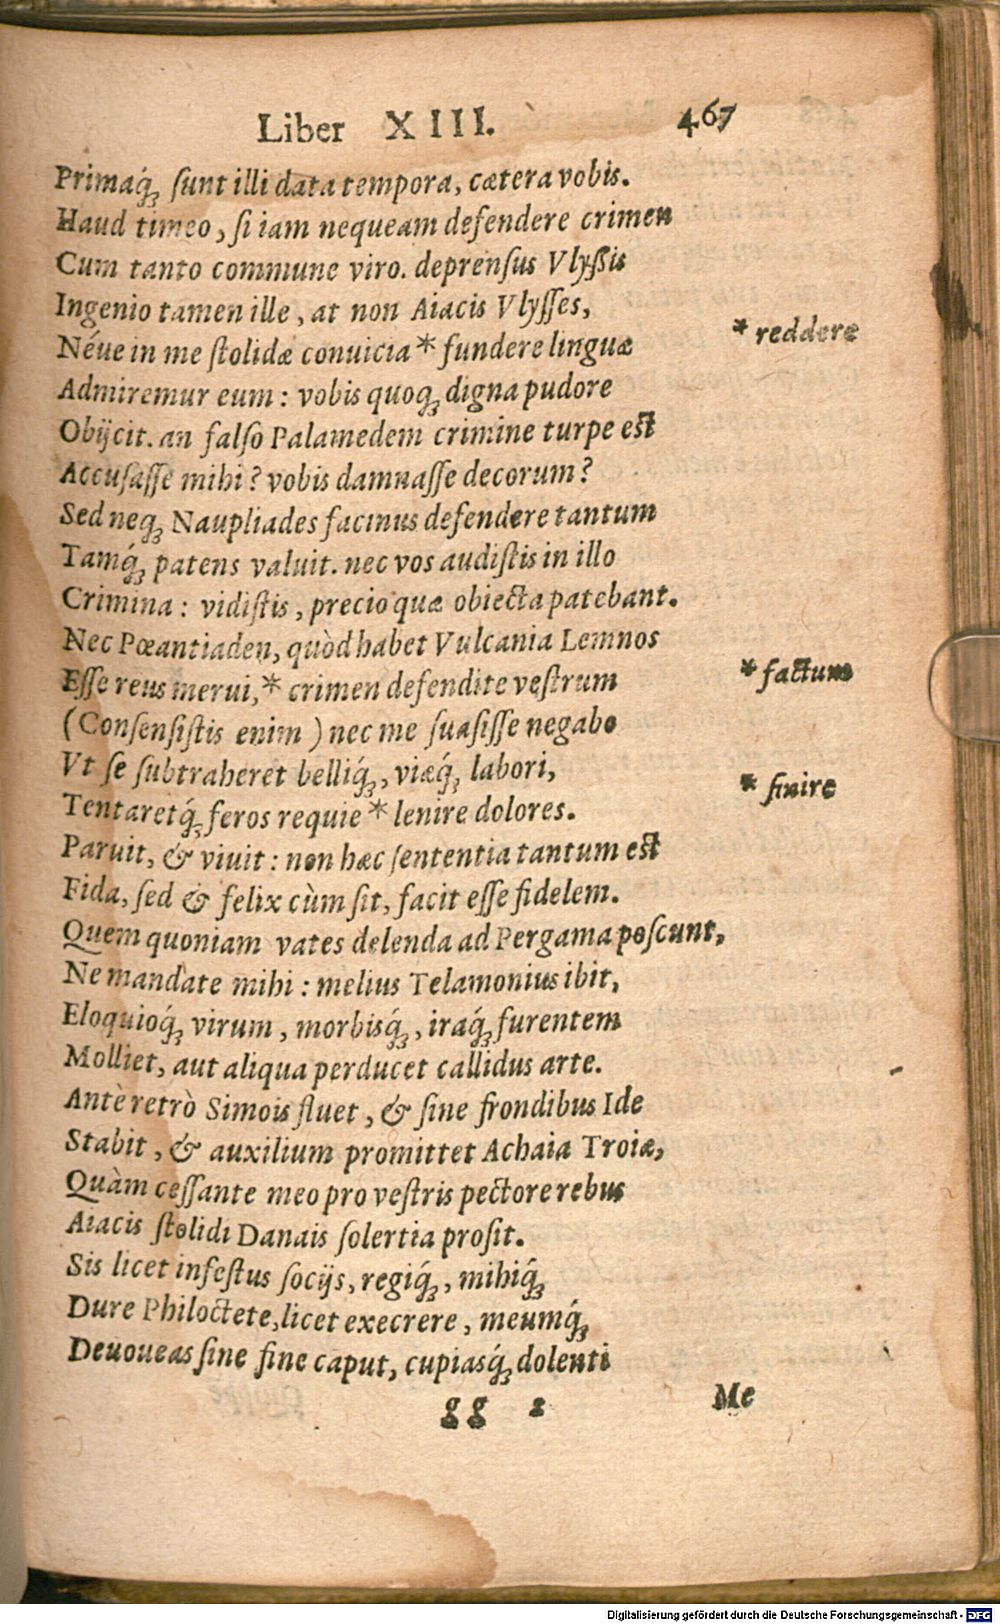 Liber XIII. 467
Primaq́ꝫ ſunt illi data tempora, cætera vobis.
Haud timeo, ſi iam nequeam defendere crimen
Cum tanto commune viro. deprenſus Vlyßis
Ingenio tamen ille, at non Aiacis Vlyſſes,
Néue in me ſtolidæ conuicia * fundere linguæ * reddere
Admiremur eum: vobis quoqꝫ digna pudore
Obijcit. an falſo Palamedem crimine turpe eſt
Accuſaſſe mihi? vobis damnaſſe decorum?
Sed neqꝫ Naupliades facinus defendere tantum
Tamq́ꝫ patens valuit. nec vos audiſtis in illo
Crimina: vidiſtis, precio quæ obiecta patebant.
Nec Pœantiaden, quòd habet Vulcania Lemnos
Eſſe reus merui, * crimen defendite veſtrum * factum
(Conſenſiſtis enim) nec me ſuaſiſſe negabo
Vt ſe ſubtraheret belliq́ꝫ, viæq́ꝫ labori,
Tentaretq́ꝫ feros requie * lenire dolores. * finire
Paruit, & viuit: non hæc ſententia tantum eſt
Fida, ſed & felix cùm ſit, facit eſſe fidelem.
Quem quoniam vates delenda ad Pergama poſcunt,
Ne mandate mihi: melius Telamonius ibit,
Eloquioq́ꝫ virum, morbisq́ꝫ, iraq́ꝫ furentem
Molliet, aut aliqua perducet callidus arte.
Antè retrò Simois fluet, & ſine frondibus Ide
Stabit, & auxilium promittet Achaia Troiæ,
Quàm ceſſante meo pro veſtris pectore rebus
Aiacis ſtolidi Danais ſolertia proſit.
Sis licet infeſtus ſocijs, regiq́ꝫ, mihiq́ꝫ
Dure Philoctete, licet execrere, meumq́ꝫ
Deuoueas ſine fine caput, cupiasq́ꝫ dolenti
gg 2 Me
Digitalisierung gefördert durch die Deutsche Forschungsgemeinschaft - DFG